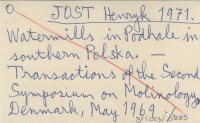 JOST Henryk 1971.
Watermills in Podhale in
southern Polska. —
Transactions of the Second
Symposium on Molinology
Denmark, May 1969